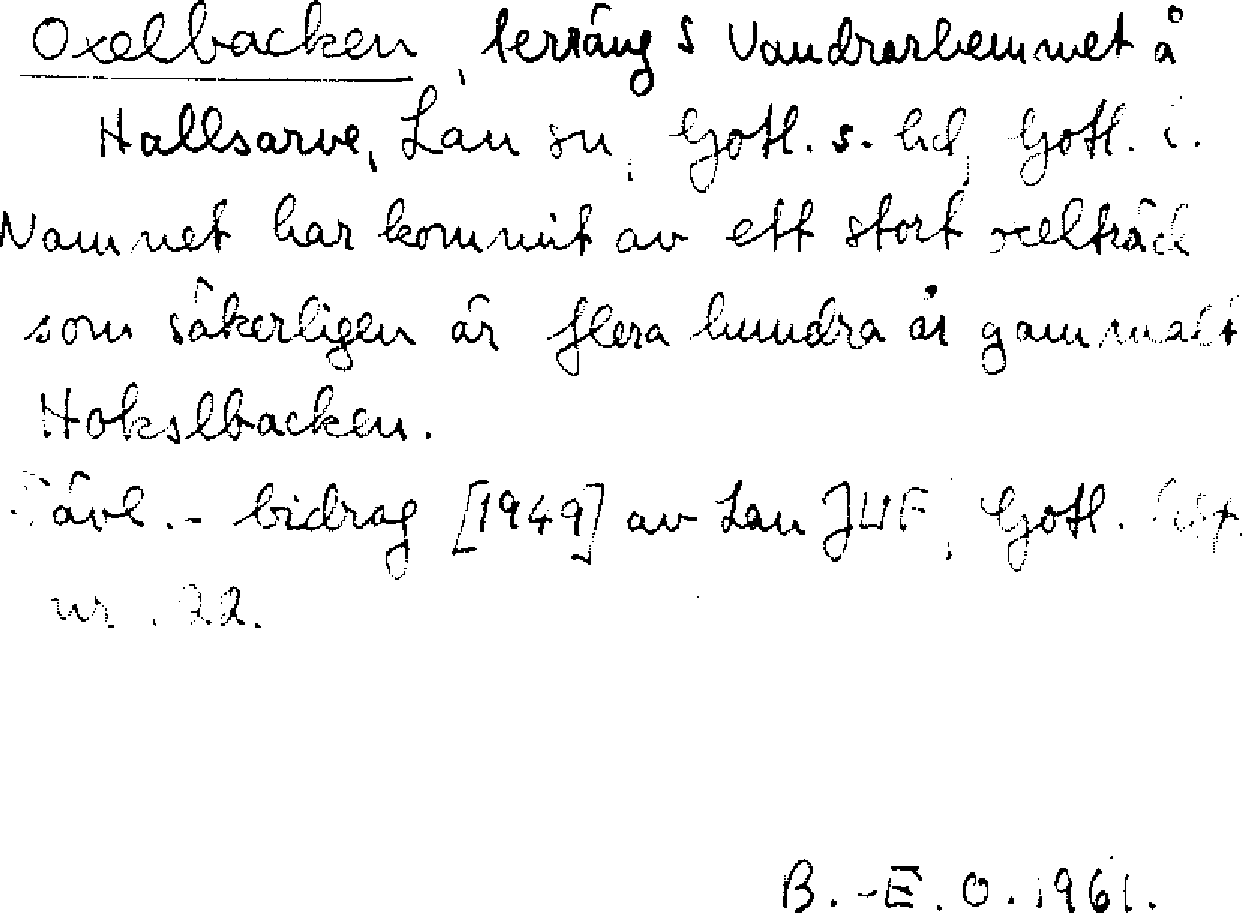 Oxelbacken, terräng S Vandrarhemmet å
Hallsarve, Lau sn, Gotl. s. hd, Gotl. l.
Namnet har kommit av ett stort oxelträd
som säkerligen är flera hundra år gammalt
Hokslbacken.
Tävl.- bidrag [1949] av Lau JUF, Gotl.
nr. 22.
B.-E. O. 1961.